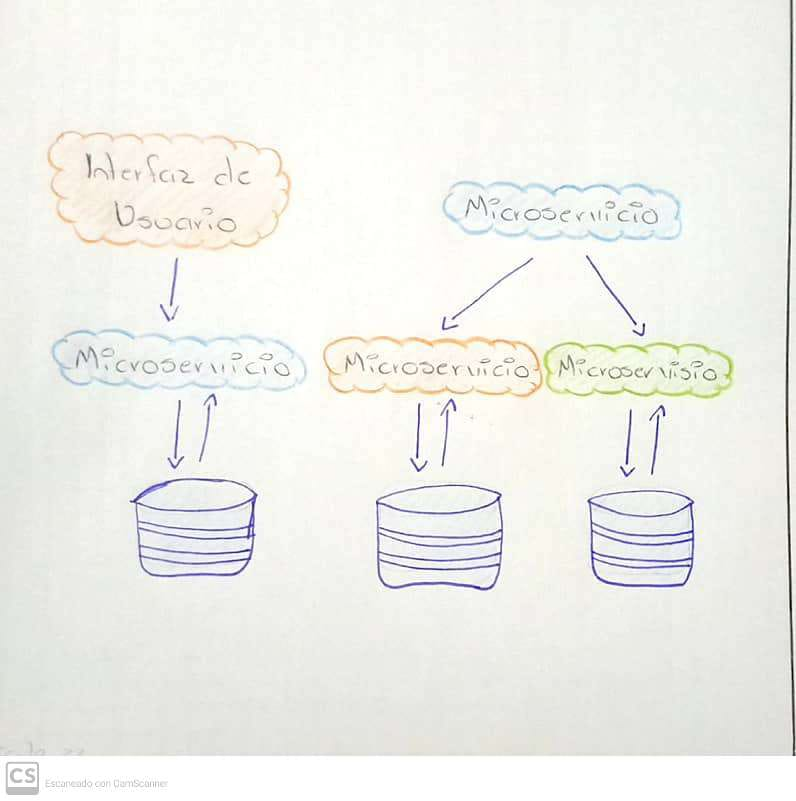 Interfaz de
Usuario
Microservicio
Microservicio
Microservicio
Microservisio
CS
Escaneado con CamScanner